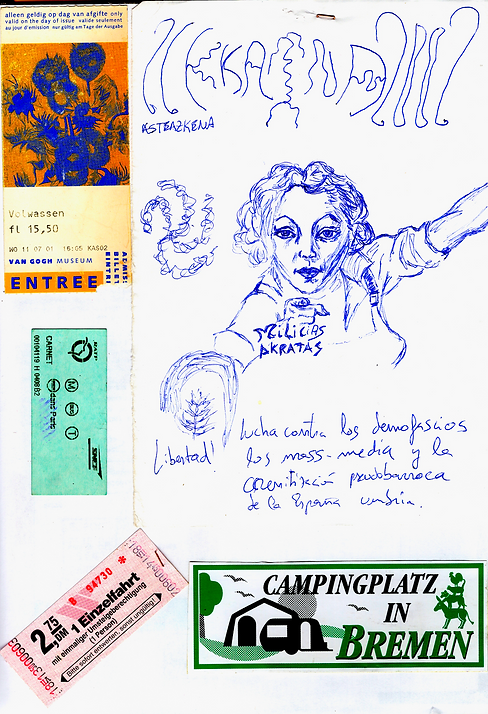 alleen geldig op dag van afgifte only
valid on the day of issue valide seulement
au jour d'emission nur gültig am Tage der Ausgabe
Volwassen
fl 15,50
WO 11 07 01 16:05 KAS02
VAN GOGH MUSEUM
ENTREE
ASTEAZKENA
MILICIAS
AKRATAS
Libertad!
lucha contra los demofascios
los mass-media y la
pseudobarroca
de la España umbría.
RATP
CARNET
00104119 H 0408B2
M
RER
T
Paris
SNCF
94730 *
2,75 DM 1 Einzelfahrt
mit einmaliger Umsteigeberechtigung
(1 Person)
Bitte sofort entwerten, sonst ungültig
CAMPINGPLATZ
IN
BREMEN